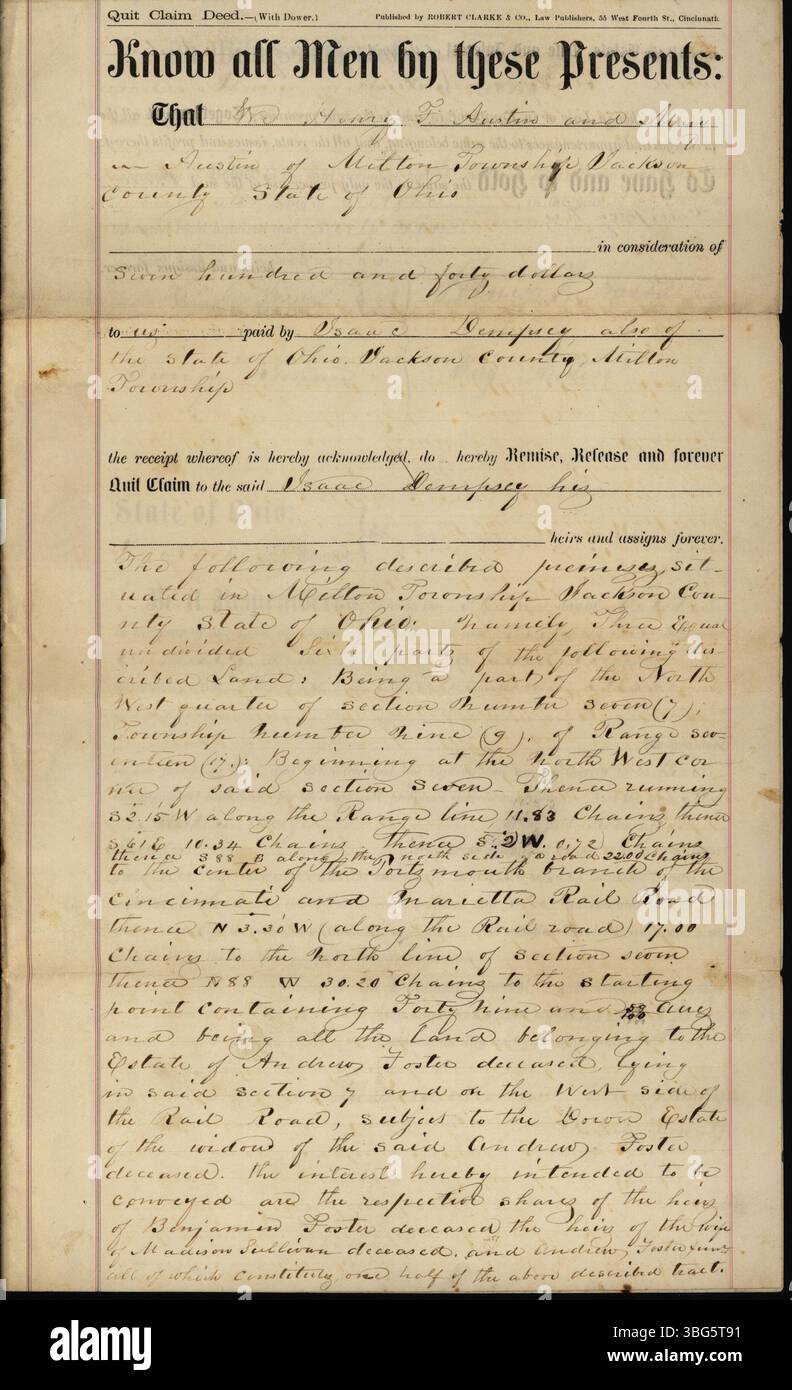 Quit Claim Deed.—(With Dower.) Published by ROBERT CLARKE & CO., Law Publishers, 55 West Fourth St., Cincinnati.
Know all Men by these Presents:
That We Henry F. Austin and
Austin of Milton Township Jackson
County State of Ohio
in consideration of
Seven hundred and forty dollars
to us paid by Isaac Dempsey also of
the State of Ohio. Jackson County, Milton
Township
the receipt whereof is hereby acknowledged, do hereby Remise, Release and forever
Quit Claim to the said Isaac Dempsey his
heirs and assigns forever.
The following described premises, sit-
uated in Milton Township Jackson Cou-
nty State of Ohio. Namely, Three Equal
undivided Sixth parts of the following des-
cribed Land: Being a part of the North
West quarter of Section Number Seven (7),
Township Number Nine (9), of Range sev-
enteen (17.): Beginning at the North West cor-
ner of said section seven Thence running
S 2.15 W along the Range line 11.83 Chains thence
S 61 E 10.34 Chains thence S. 2 W. 0.72 Chains
thence S 88 E along the north side of a road 22.00 Chains
to the center of the Portsmouth branch of the
Cincinnati and Marietta Rail Road
thence N 3.30 W (along the Rail road) 17.00
Chains to the North line of section seven
thence N 88 W 30.20 Chains to the starting
point containing Forty Nine and Acres
and being all the land belonging to the
Estate of Andrew Foster deceased, lying
in said section 7 and on the West side of
the Rail Road, subject to the Dower Estate
of the widow of the said Andrew Foster
deceased. the interest hereby intended to be
conveyed are the respective shares of the heirs
of Benjamin Foster deceased, the heirs of the wife
of Madison Sullivan deceased. and Andrew Foster Junr
all of which constitutes one half of the above described tract.
alamy
Image ID: 3BG5T91
www.alamy.com